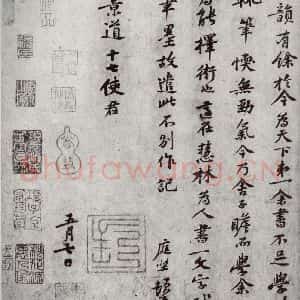 韻有餘於今為天下第一余書不足學
輒筆愞無勁氣今乃舍子瞻而學余
為能擇術也適在慧林為人書一文字
筆墨故遣此不別作記
庭堅頓
景道十七使君
五月七日
Shufawang.CN